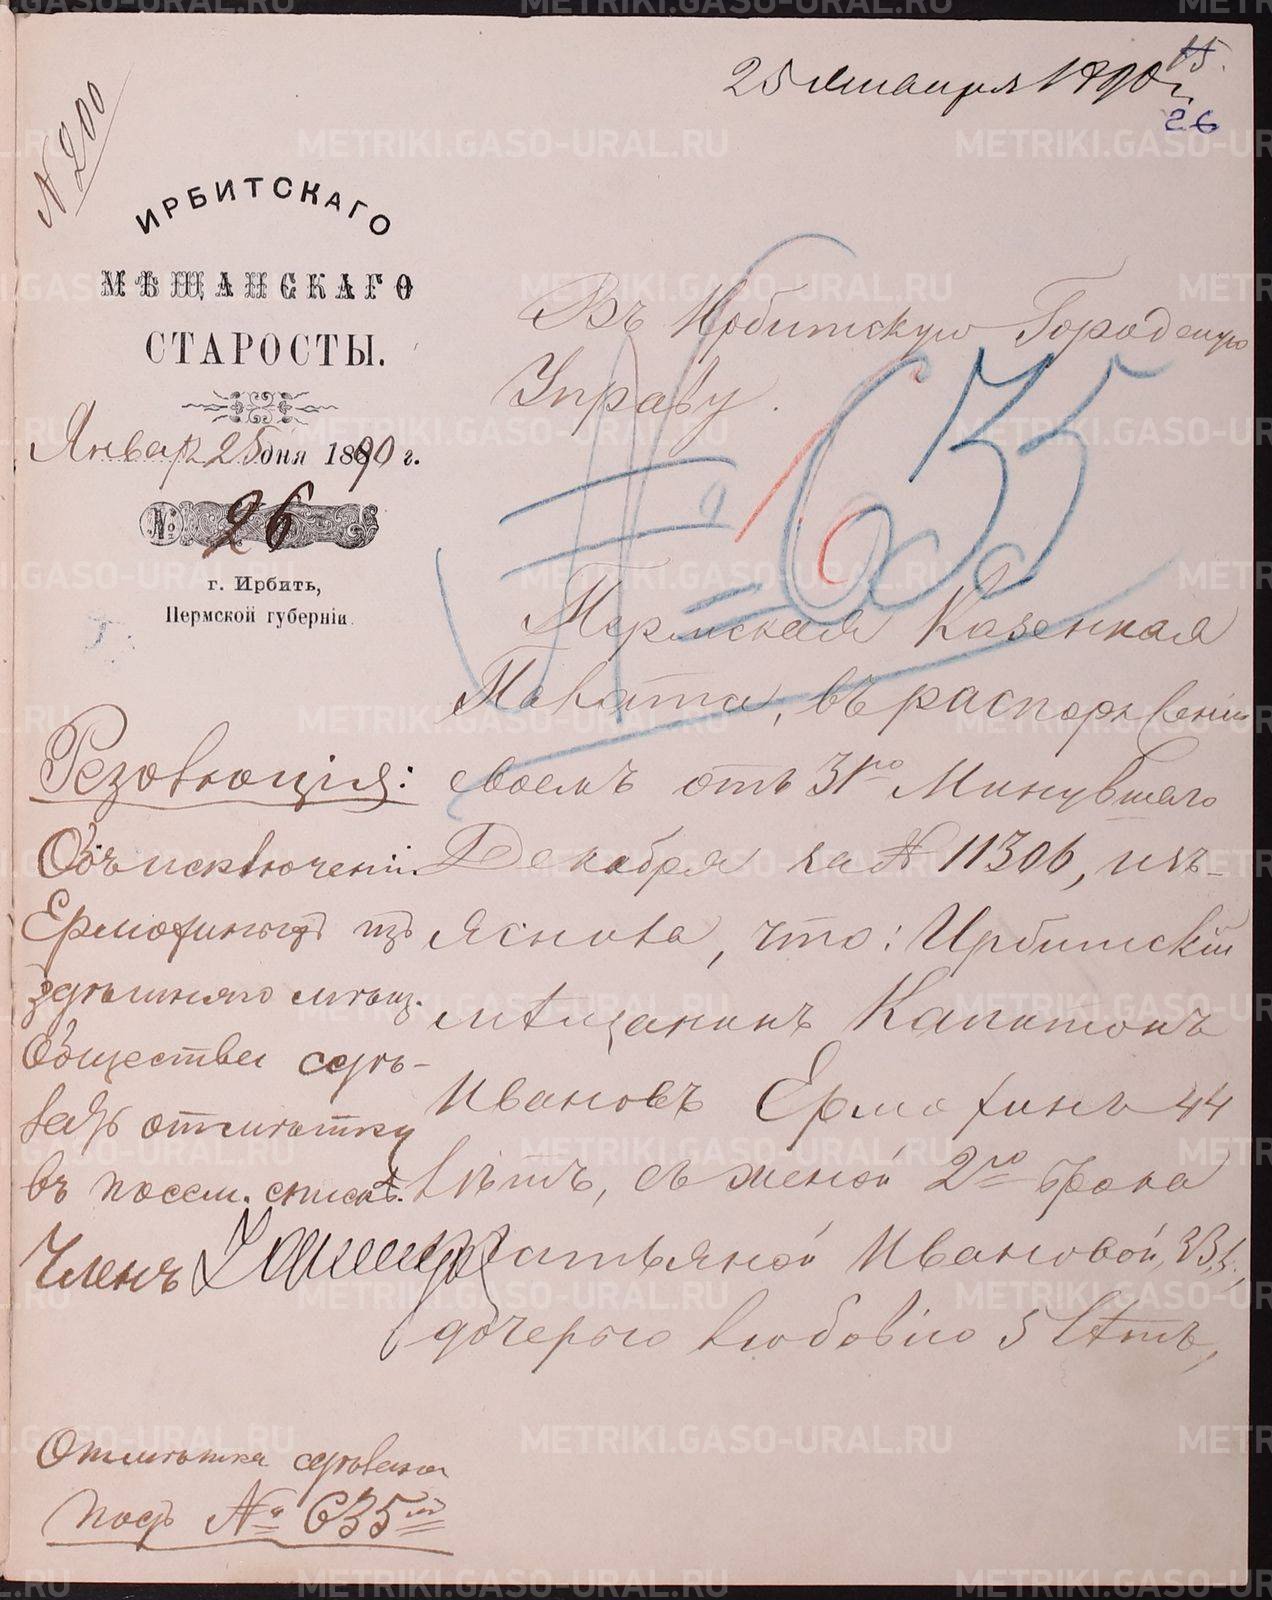 25 января 1890 г.
15.
26
N 200
ИРБИТСКАГО
МѢЩАНСКАГО
СТАРОСТЫ.
Января 25 дня 1890 г.
№ 26
г. Ирбить,
Пермской губерніи
Въ Ирбитскую Городскую
Управу.
№ 635
Пермская Казенная
Палата, въ распоряженіи
своемъ отъ 31го Минувшаго
Декабря за № 11306, изъ-
яснила, что: Ирбитскій
мѣщанинъ Капитонъ
Ивановъ Ермохинъ 44
лѣтъ, съ женой 2го брака
Татьяной Ивановой, 33 л.,
дочерью Любовію 5 лѣтъ,
Резолюція:
Объ исключеніи
Ермохиныхъ изъ
здѣшняго мѣщ.
Общества сдѣ-
лать отмѣтку
въ посем. спискѣ.
Членъ
Отмѣтка сдѣлана
подъ № 635 м
METRIKI.GASO-URAL.RU